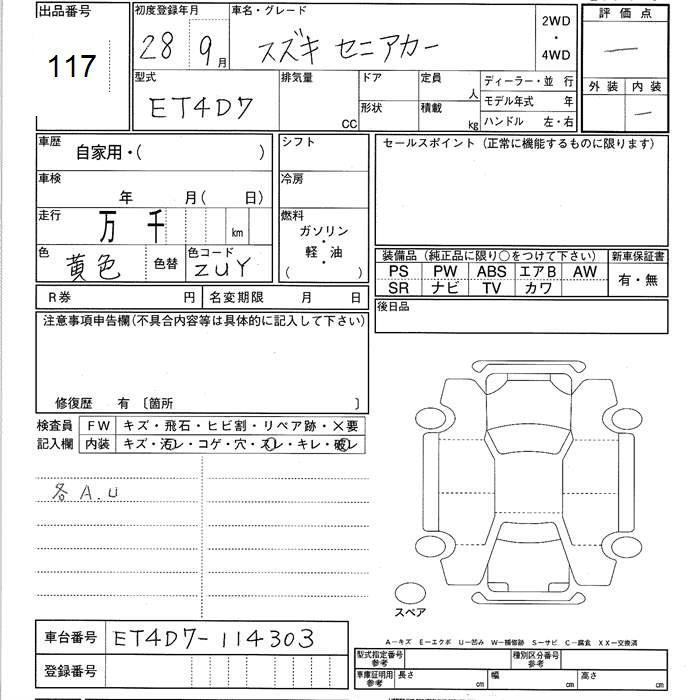 出品番号
117
初度登録年月
28 9月
車名・グレード
スズキ セニアカー
2WD
・
4WD
評価点
—
外装 内装
—
型式
ET4D7
排気量
CC
ドア
形状
定員
人
積載
kg
ディーラー・並 行
モデル年式 年
ハンドル 左・右
車歴
自家用・( )
シフト
セールスポイント (正常に機能するものに限ります)
車検
年 月( 日)
冷房
走行
万 千 km
燃料
ガソリン
・
軽・油
( )
色
黄色
色替
色コード
ZUY
装備品 (純正品に限り○をつけて下さい)
新車保証書
PS PW ABS エアB AW
有・無
SR ナビ TV カワ
R券 円 名変期限 月 日
後日品
注意事項申告欄(不具合内容等は具体的に記入して下さい)
修復歴 有 〔箇所 〕
検査員
記入欄
FW キズ・飛石・ヒビ割・リペア跡・×要
内装 キズ・汚レ・コゲ・穴・スレ・キレ・破レ
各A.U
スペア
車台番号 ET4D7-114303
登録番号
A—キズ E—エクボ U—凹み W—補修跡 S—サビ C—腐食 XX—交換済
型式指定番号
参考
種別区分番号
参考
車庫証明用
参考
長さ cm 幅 cm 高さ cm